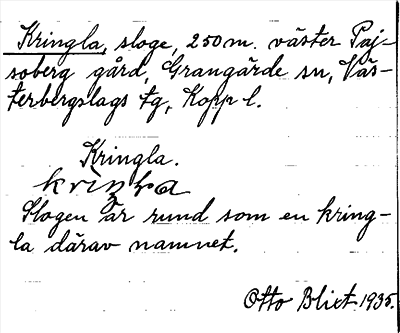 Kringla, sloge, 250 m. väster Paj-
soberg gård, Grangärde sn, Väs-
terbergslags tg, Kopp l.
Kringla.
Slogen är rund som en kring-
la därav namnet.
Otto Blixt. 1935.